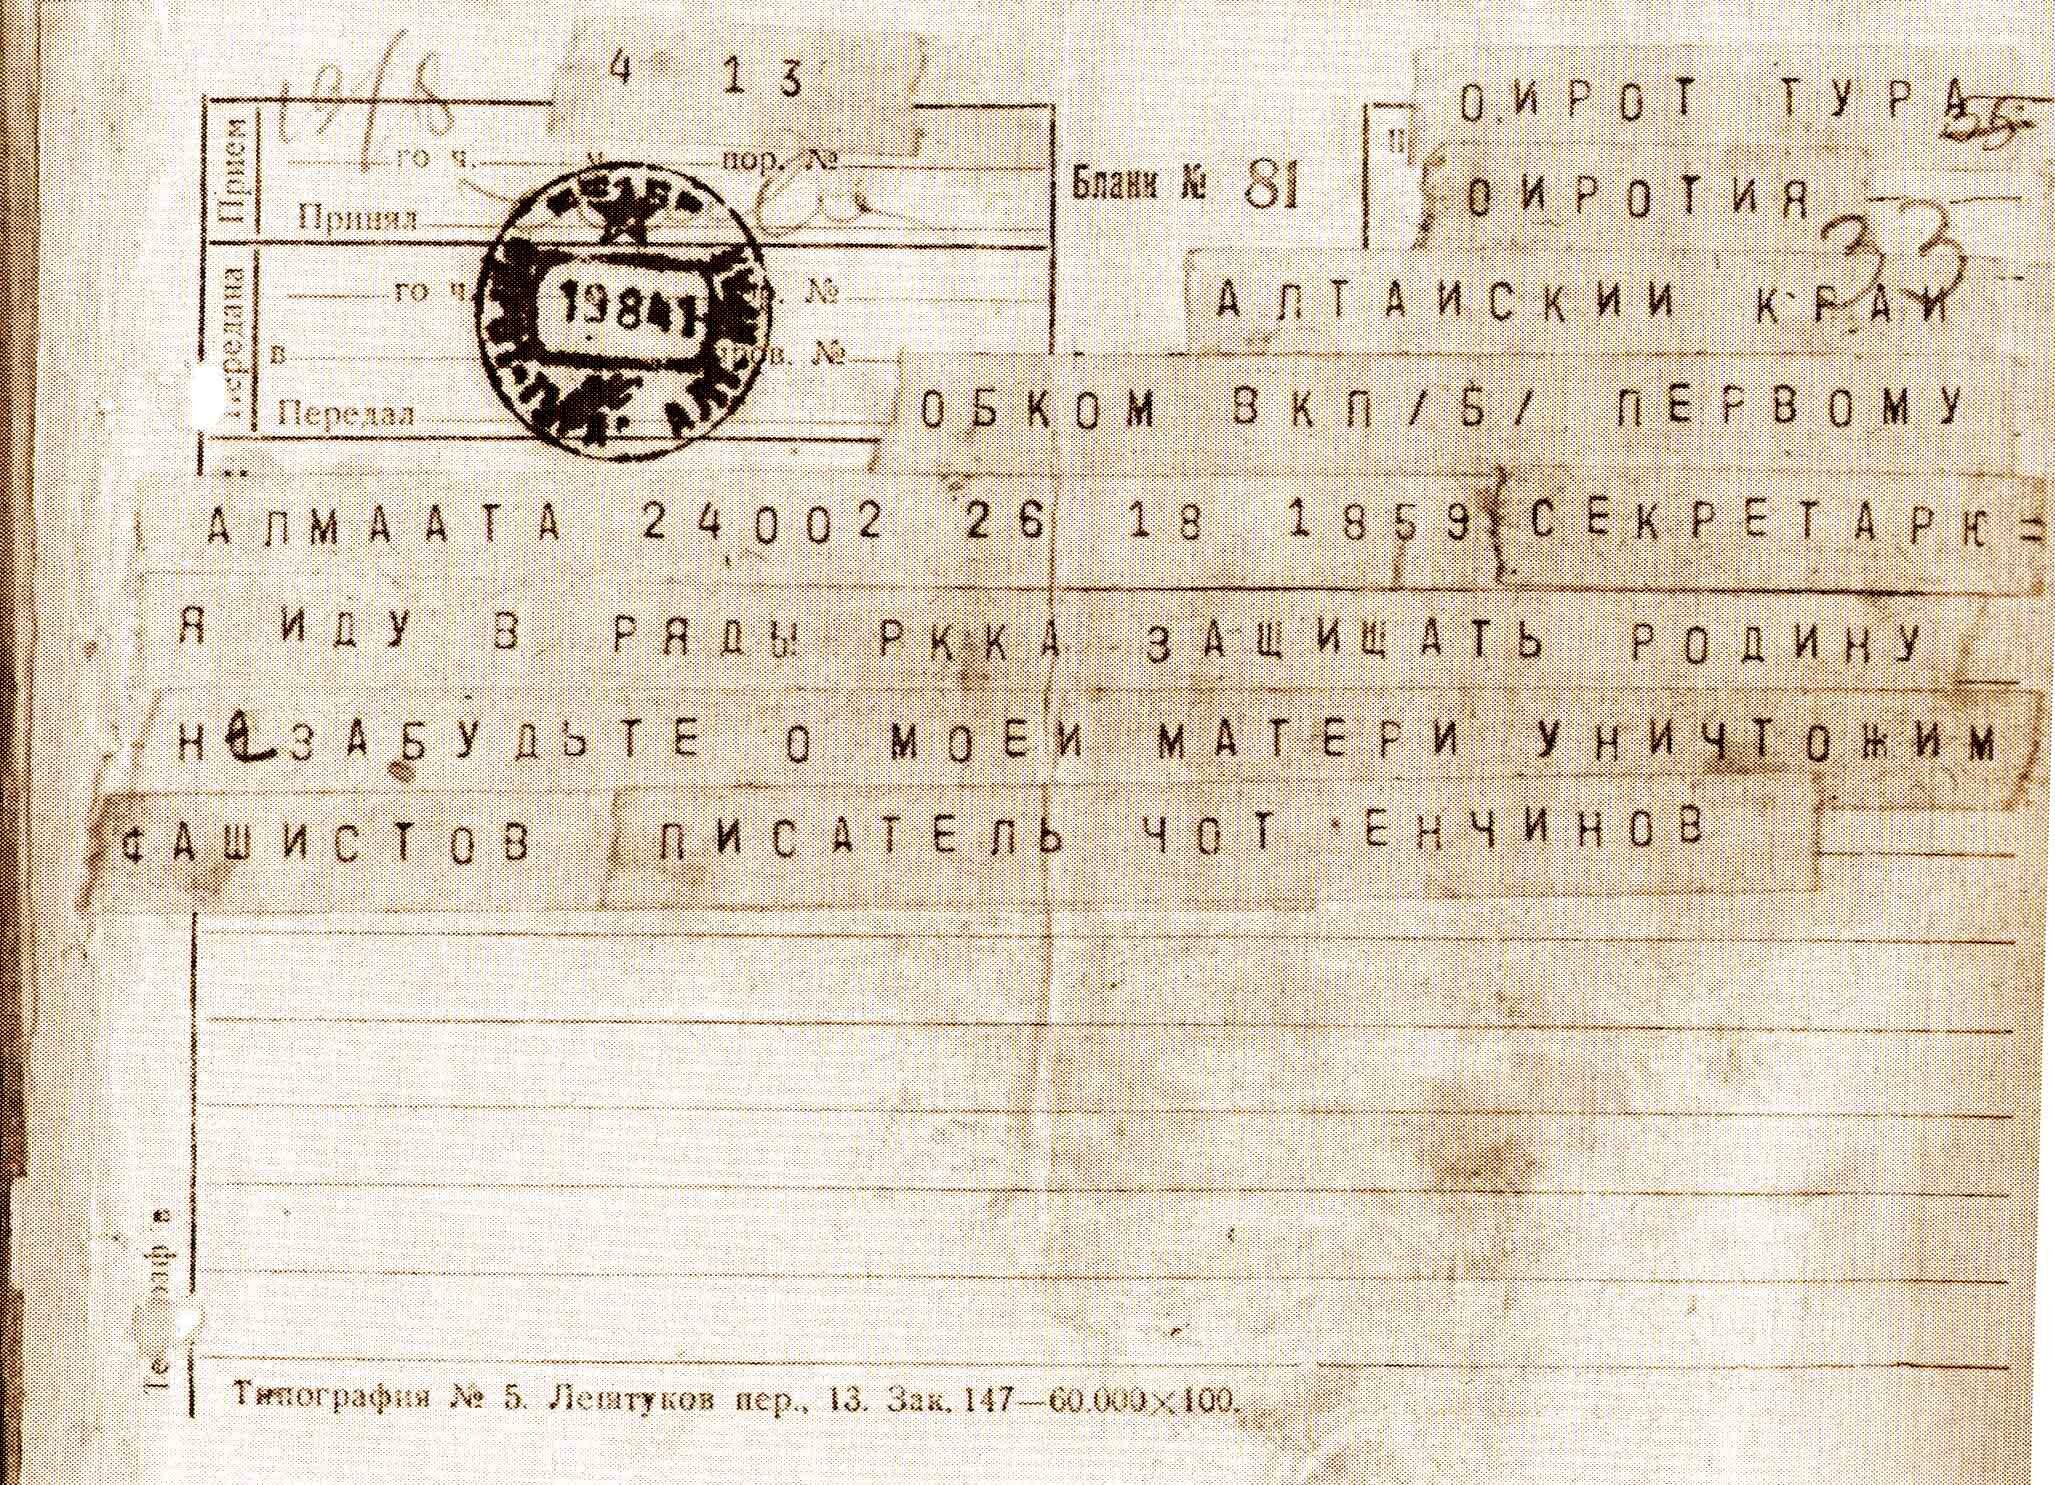 19/8
4 13
ОИРОТ ТУРА
35
Прием
го ч. м. пор. №
Принял
Бланк № 81
ОИРОТИЯ
33
Передана
го ч. №
АЛТАИСКИИ КРАИ
19841
в №
Передал
ОБКОМ ВКП/Б/ ПЕРВОМУ
АЛМААТА 24002 26 18 1859 СЕКРЕТАРЮ=
Я ИДУ В РЯДЫ РККА ЗАЩИЩАТЬ РОДИНУ
НЕ ЗАБУДЬТЕ О МОЕИ МАТЕРИ УНИЧТОЖИМ
ФАШИСТОВ ПИСАТЕЛЬ ЧОТ ЕНЧИНОВ
Типография № 5. Лештуков пер., 13. Зак. 147—60.000×100.